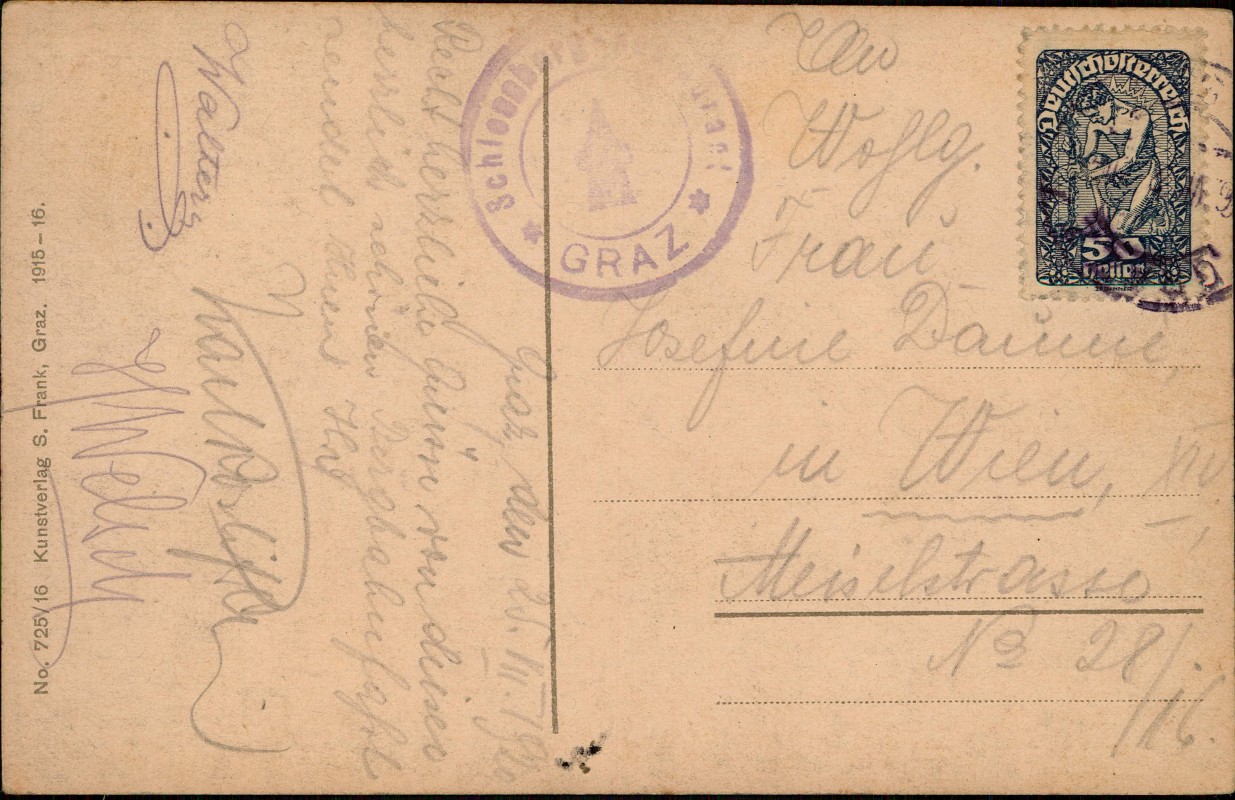 An
Wohlg.
Frau
Josefine Daume,
in Wien, XIV,
Meiselstrasse
No 28/16.
Deutschösterreich
50
Heller
Schlossberg
GRAZ
Graz, den 25. III. 1920
Recht herzliche Grüsse von dieser
herrlich schönen Bergbahnfahrt
sendet Ihnen Ihr
Karl
Walter
No. 725/16 Kunstverlag S. Frank, Graz. 1915 – 16.